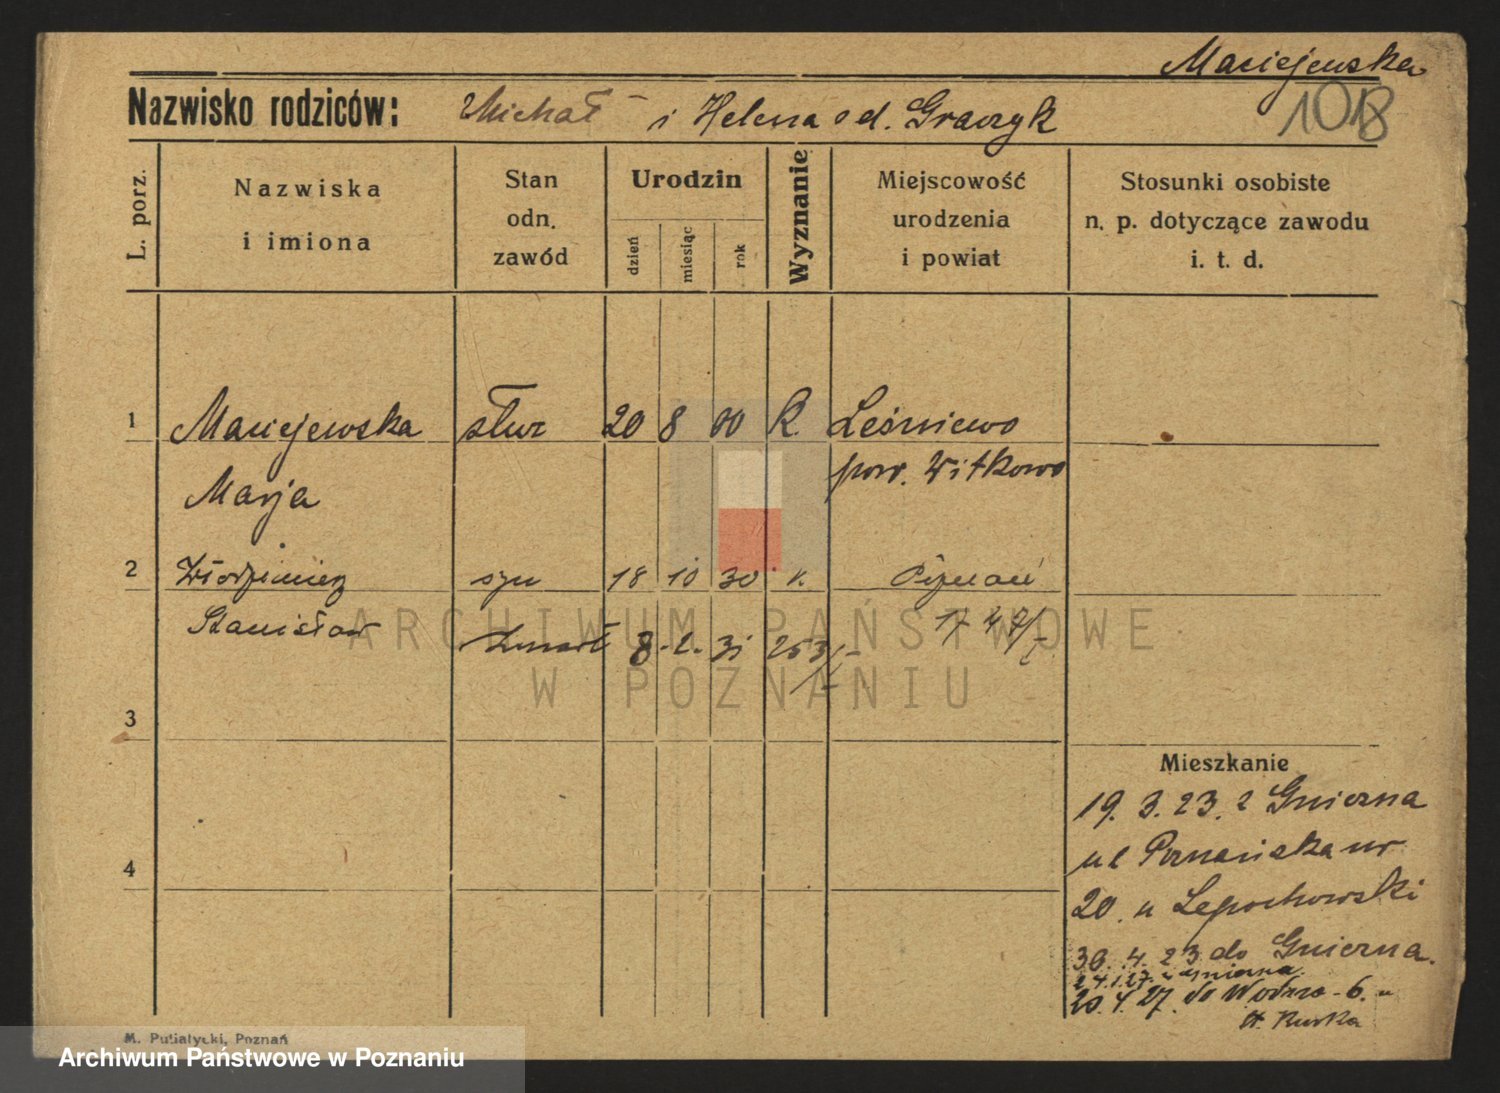 Maciejewska
Nazwisko rodziców: Michał i Helena od. Graczyk
1018
L. porz.
Nazwiska
i imiona
Stan
odn.
zawód
Urodzin
dzień
miesiąc
rok
Wyznanie
Miejscowość
urodzenia
i powiat
Stosunki osobiste
n. p. dotyczące zawodu
i. t. d.
1 Maciejewska służ 20 8 00 R. Leśniewo
Marja pow. Witkowo
2 Włodzimierz syn 18 10 30 r. Poznań
Stanisław zmarł 8.2.31 253/I 1747/I
ARCHIWUM PAŃSTWOWE
W POZNANIU
3
Mieszkanie
19. 3. 23. z Gniezna
ul Poznańska nr
4
20. u Lepochowski
30. 4. 23 do Gniezna.
24.1.27 z Gniezna
20.4.27. do Wodna - 6. u
M. Putiatycki, Poznań
Archiwum Państwowe w Poznaniu